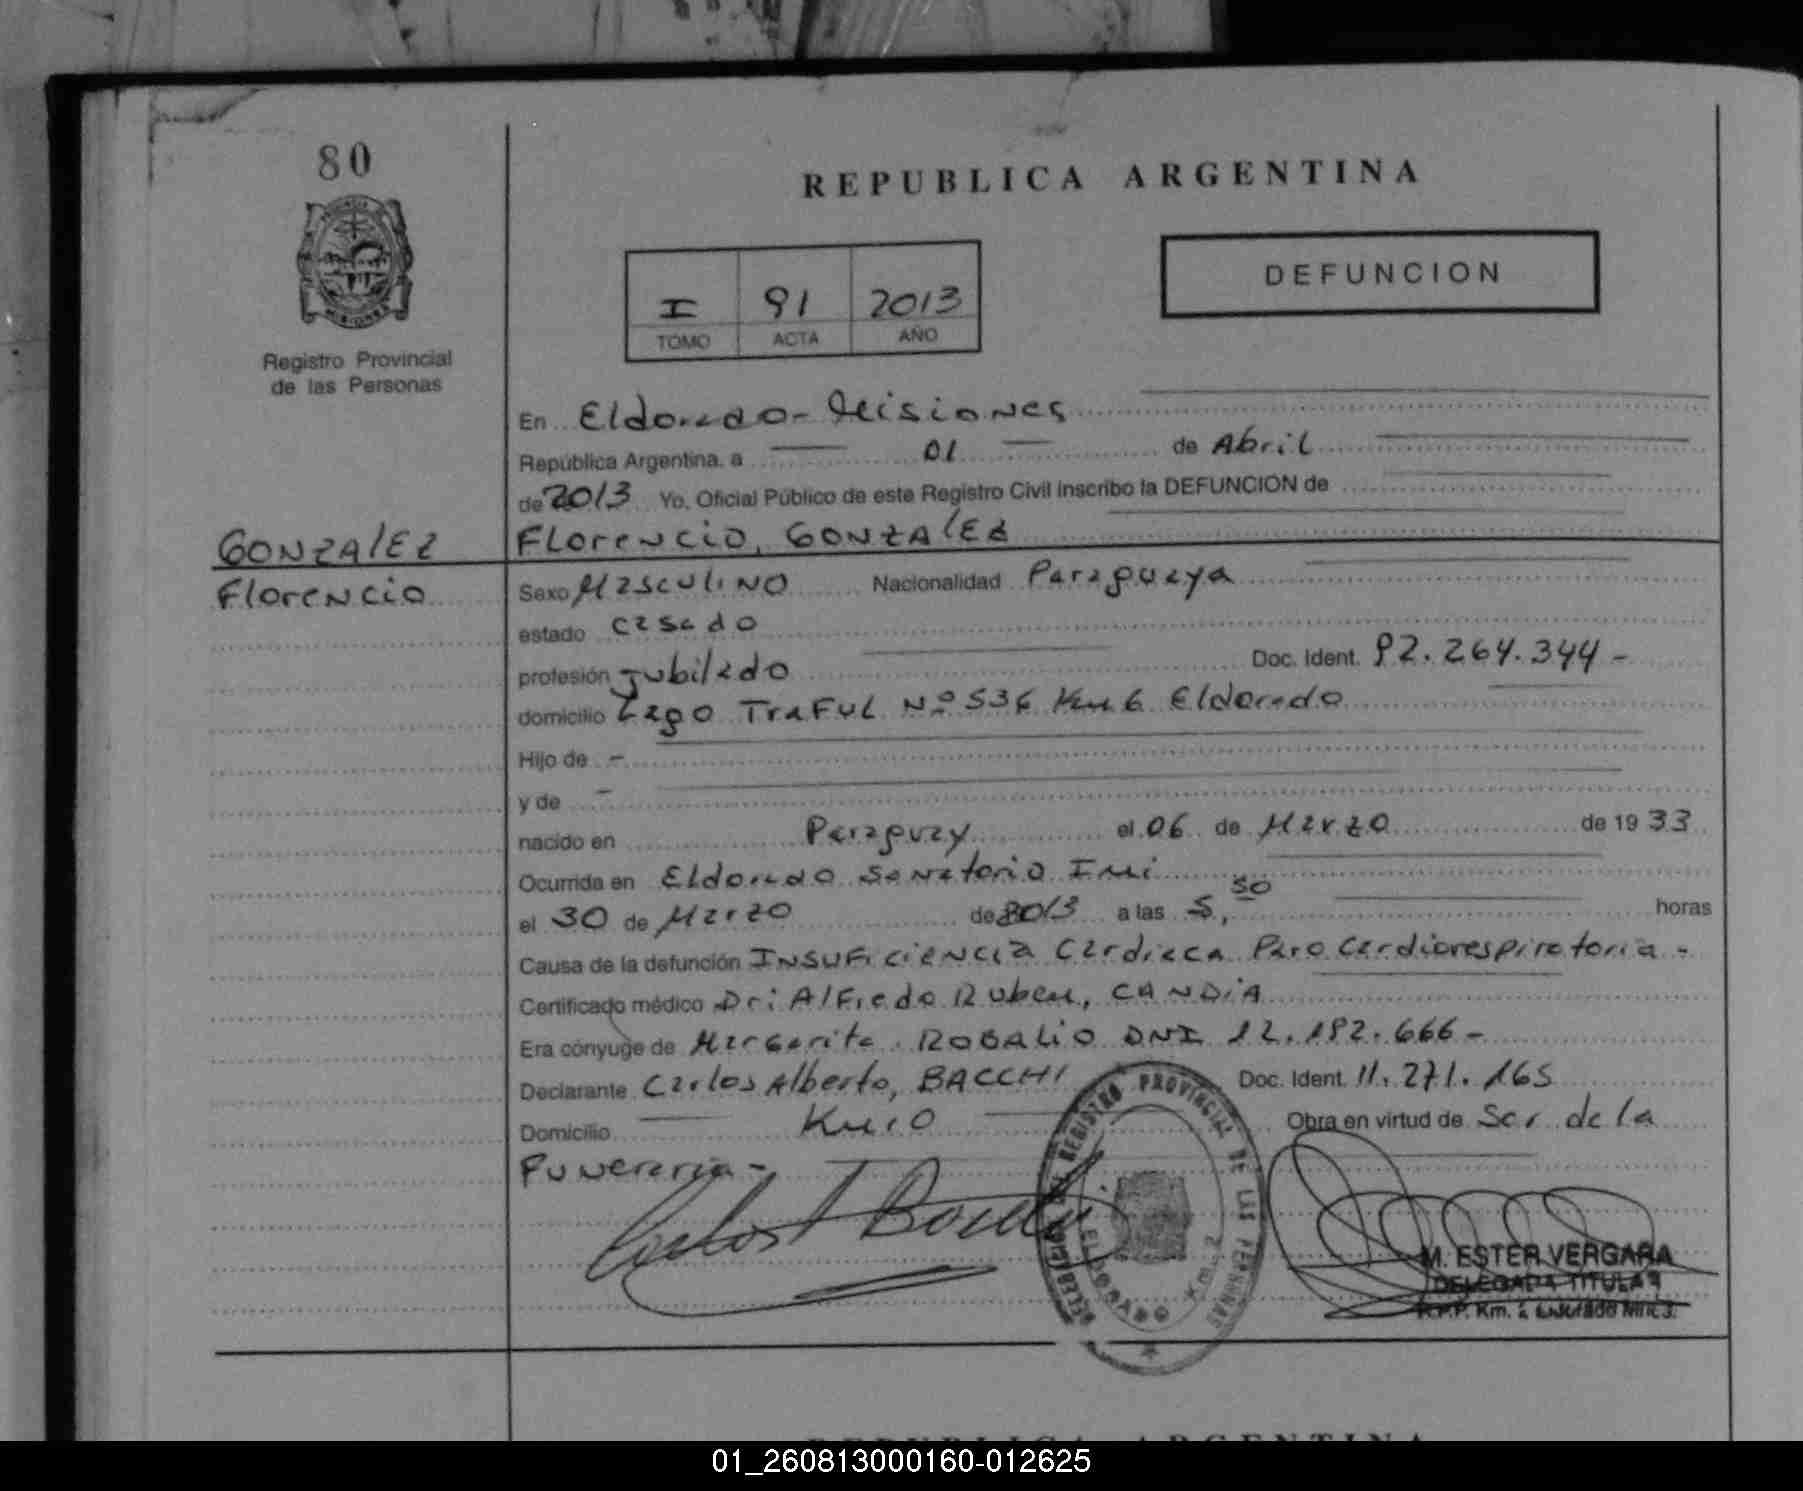 80
REPUBLICA ARGENTINA
DEFUNCION
I 91 2013
TOMO ACTA AÑO
Registro Provincial
de las Personas
En Eldorado - Misiones
República Argentina, a 01 de Abril
de 2013 Yo, Oficial Público de este Registro Civil inscribo la DEFUNCION de
GONZALEZ
Florencio
Florencio, GONZALEZ
Sexo Masculino Nacionalidad Paraguaya
estado casado
profesión Jubilado Doc. Ident. 92.264.344-
domicilio Lago Traful Nº 536 Km 6 Eldorado
Hijo de -
y de -
nacido en Paraguay el 06 de Marzo de 1933
Ocurrida en Eldorado Sanatorio Imi
el 30 de Marzo de 2013 a las 5,50 horas
Causa de la defunción Insuficiencia Cardiaca Paro Cardiorespiratoria -
Certificado médico Dr: Alfredo Ruben, CANDIA
Era cónyuge de Margarita ROBALIO DNI 12.192.666-
Declarante Carlos Alberto, BACCHI Doc. Ident. 11.271.165
Domicilio Km 10 Obra en virtud de Ser de la
Funeraria -
DELEGACION DEL REGISTRO PROVINCIAL DE LAS PERSONAS
ELDORADO Km. 2
M. ESTER VERGARA
DELEGADA TITULAR
R.P.P. Km. 2 Eldorado Mnes.
REPUBLICA ARGENTINA
01_260813000160-012625